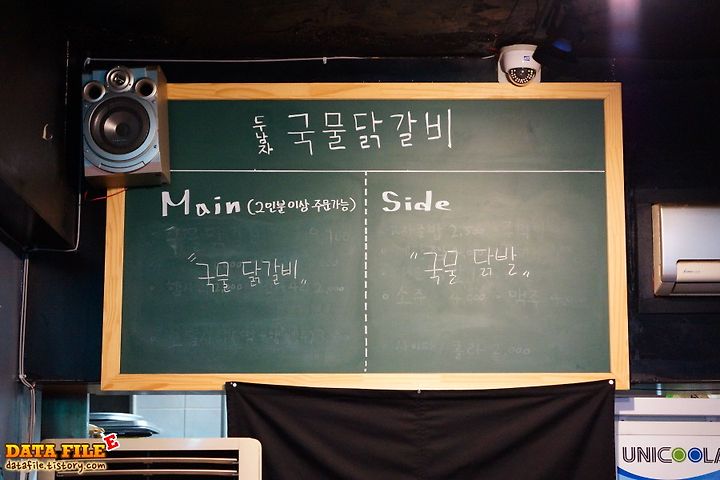 두남자 국물닭갈비
Main (2인분 이상 주문가능)
"국물 닭갈비"
Side
"국물 닭발"
소주 4,000 - 맥주
콜라 2,000
UNICOOLA
DATA FILE
datafile.tistory.com